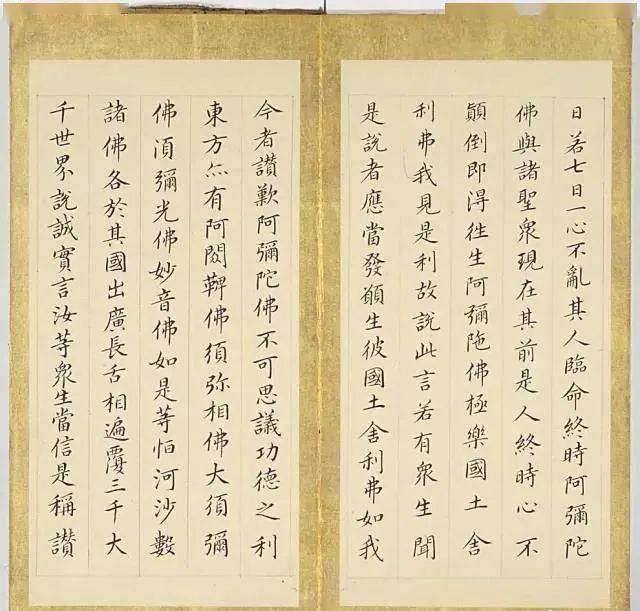 日若七日一心不亂其人臨命終時阿彌陀
佛與諸聖衆現在其前是人終時心不
顛倒即得徃生阿彌陁佛極樂國土舍
利弗我見是利故說此言若有衆生聞
是說者應當發願生彼國土舍利弗如我
今者讃歎阿彌陀佛不可思議功德之利
東方亦有阿閦鞞佛須弥相佛大須彌
佛湏彌光佛妙音佛如是等恒河沙數
諸佛各於其國出廣長舌相遍覆三千大
千世界說誠實言汝等衆生當信是稱讃